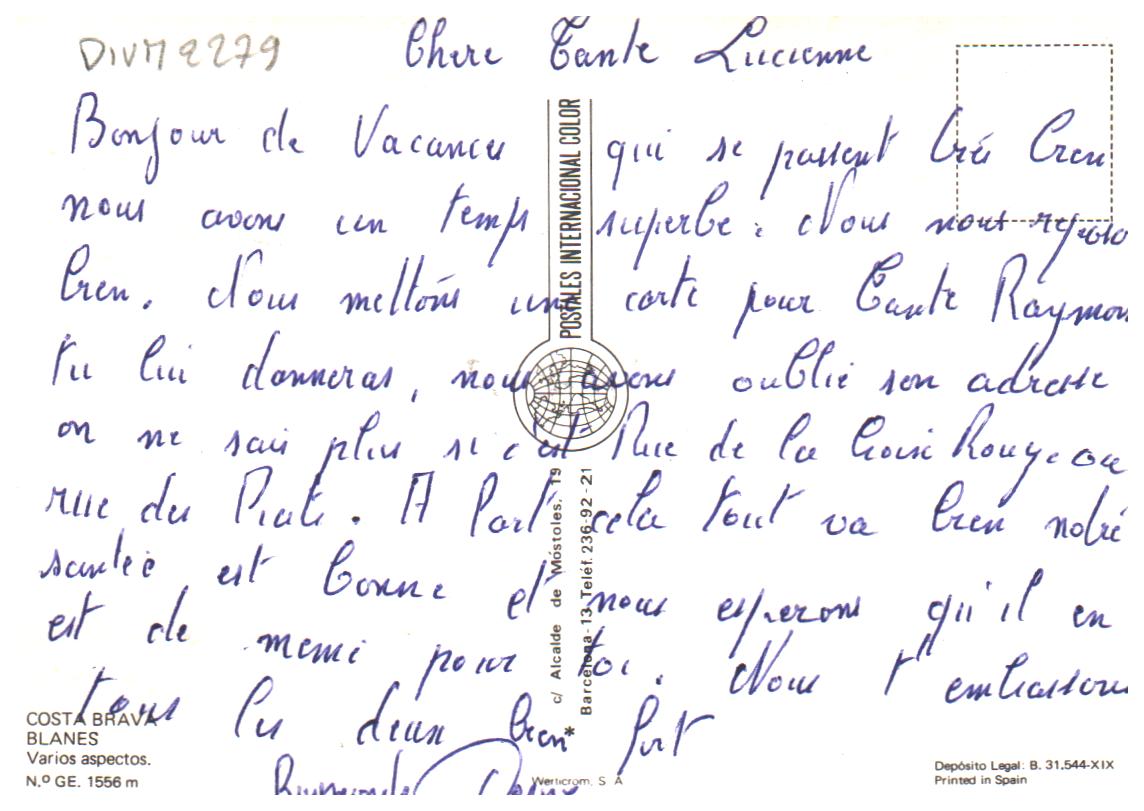 DIVM2279
Chere Tante Lucienne
Bonjour de Vacances qui se passent trés bien
nous avons un temps superbe. Nous nous reposo
bien. Nous mettons une carte pour Tante Raymon
tu lui donneras, nous avons oublié son adresse
on ne sais plus si c'est Rue de la Croix Rouge ou
rue du Prate. A Part cela tout va bien notre
santée est bonne et nous esperons qu'il en
est de meme pour toi. Nous t'embrassons
tous les deux bien fort
Raymonde
POSTALES INTERNACIONAL COLOR
c/ Alcalde de Móstoles, 19
Barcelona-13-Teléf. 236-92-21
COSTA BRAVA
BLANES
Varios aspectos.
N.º GE. 1556 m
*
Werticrom, S A
Depósito Legal: B. 31.544-XIX
Printed in Spain